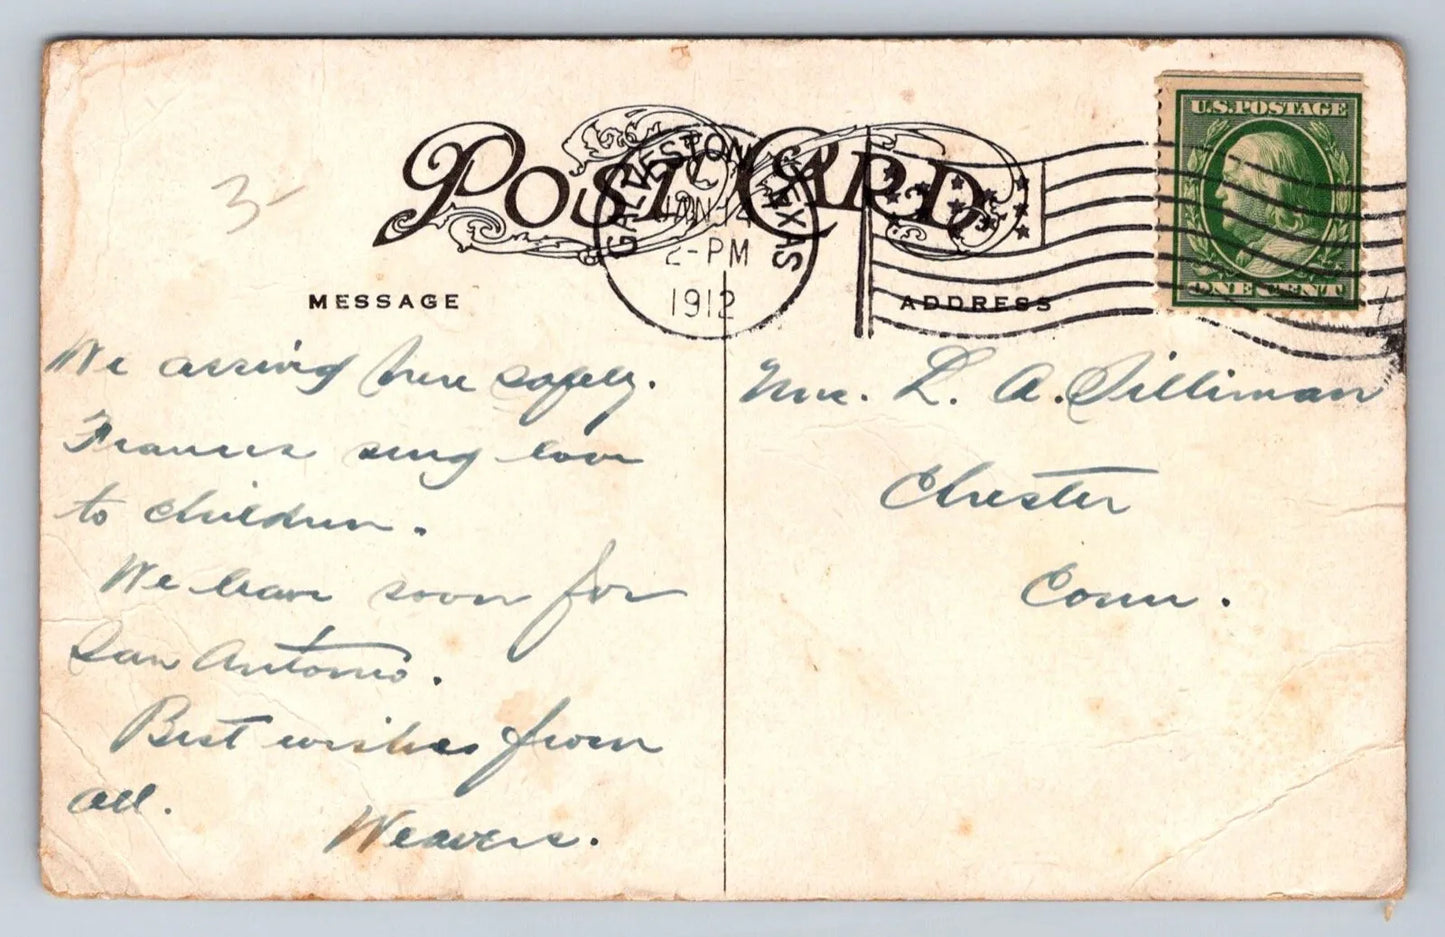 POST CARD
GALVESTON TEXAS
JAN 14
2-PM
1912
U.S. POSTAGE
ONE CENT
3-
MESSAGE
ADDRESS
We arrived here safely.
Frances send love
to children.
We leave soon for
San Antonio.
Best wishes from
all.
Weavers.
Mrs. L. A. Silliman
Chester
Conn.